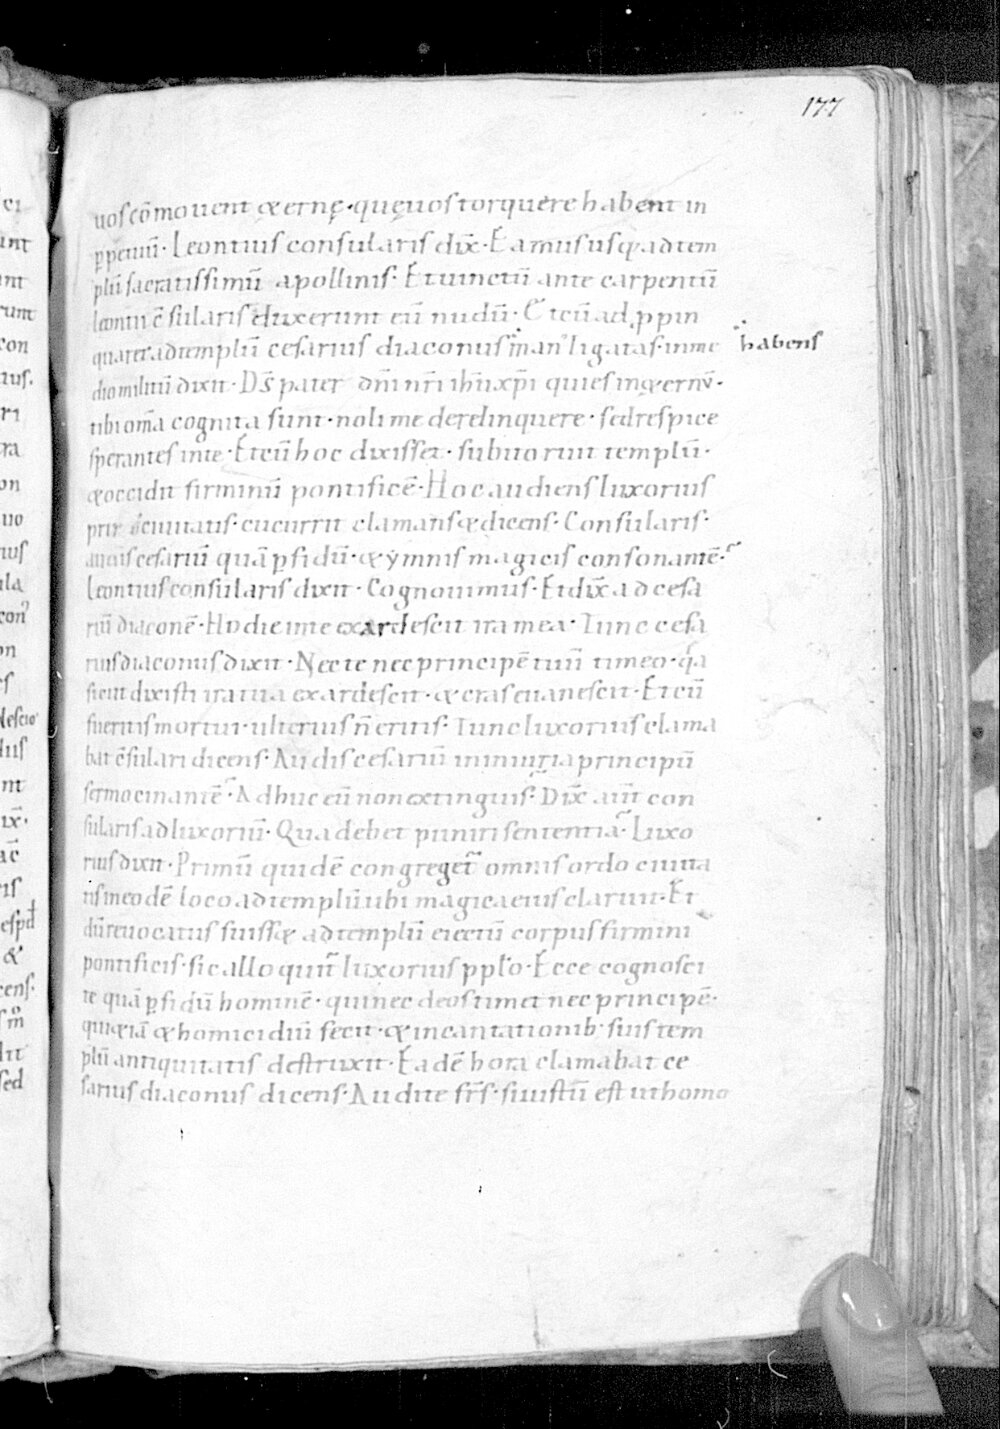 177
uos cōmouent & ernę · quę uos torquere habent in
ꝑpetuū · Leontius consularis dix̄ · Eamus usq; ad tem
plū sacratissimū apollinis · Et uinctū ante carpentū
leontii c̄sularis duxerunt eū nudū · Et cū ad ꝓpin
quaret ad templū cesarius diaconus man ligatas in me habens
dio militū dixit · D̄s pater dn̄i nr̄i ih̄u xp̄i qui es in &ernū ·
tibi om̄a cognita sunt · noli me derelinquere · sed respice
sperantes in te · Et cū hoc dixisset · subito ruit templū ·
& occidit firminū pontificē · Hoc audiens luxorius
ciuitatis · cucurrit clamans & dicens · Consularis ·
audis cesariū quā ꝑfidū · & ymnis magicis consonantē ·
Leontius consularis dixit · Cognouimus · Et dix̄ ad cesa
riū diaconē · Hodie in te exardescit ira mea · Tunc cesa
rius diaconus dixit · Nec te nec principē tuū timeo · q̄a
sicut dixisti ira tua exardescit · & cras euanescit · Et cū
fueritis mortui · ulterius n̄ eritis · Tunc luxorius clama
bat c̄sulari dicens · Audis cesariū in iniuria principū
sermocinantē · Adhuc eū non extinguis · Dix̄ aūt con
sularis ad luxoriū · Qua debet puniri sententia · Luxo
rius dixit · Primū quidē congreget̄ omnis ordo ciuita
tis in eodē loco ad templū ubi magica eius claruit · Et
dū reuocatus fuiss& ad templū eiectū corpus firmini
pontificis · sic allo quit̄ luxorius ppl̄o · Ecce cognosci
te quā ꝑfidū hominē · qui nec deos timet nec principē ·
qui &iā & homicidiū fecit · & incantationib suis tem
plū antiquitatis destruxit · Eadē hora clamabat ce
sarius diaconus dicens · Audite fr̄s · iustū est ut homo